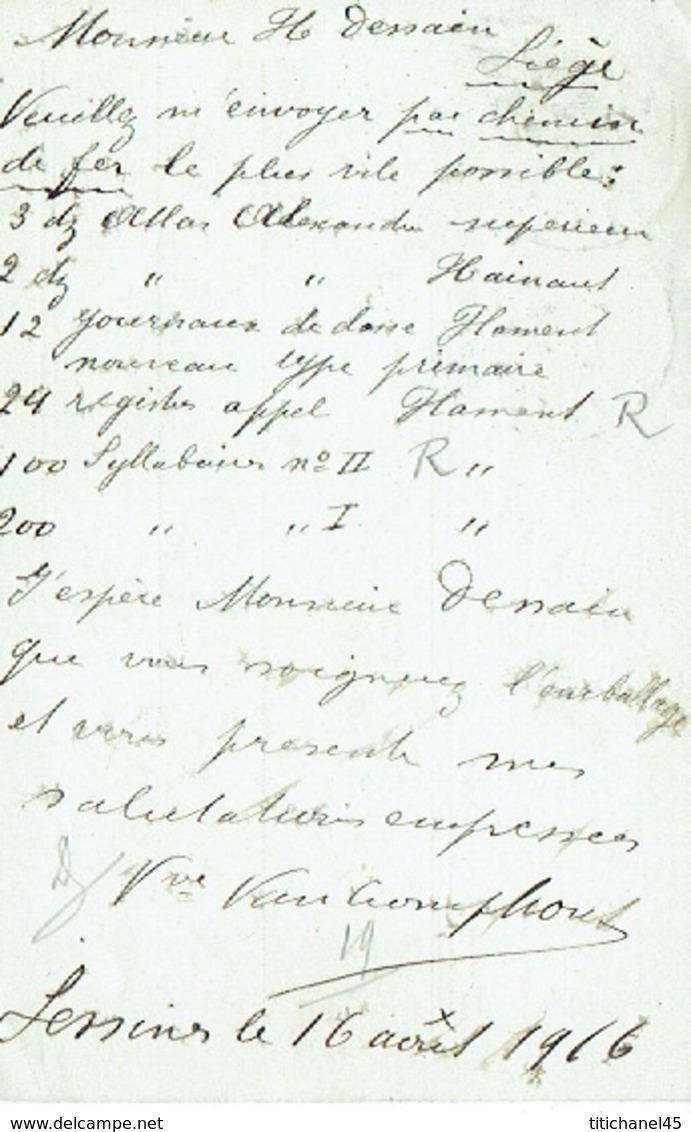 Monsieur H Dessain
Liège
Veuillez m'envoyer par chemin
de fer le plus vite possible:
3 dz Atlas Alexandre supérieur
2 dz " " Hainaut
12 journaux de classe Flament
nouveau type primaire
24 registres appel Flament R
100 Syllabaires nº II R "
200 " " I "
J'espère Monsieur Dessain
que vous soignerez l'emballage
et vous présente mes
salutations empressées
Vve Vancomphout
19
Lessines le 16 août 1916
titichanel45